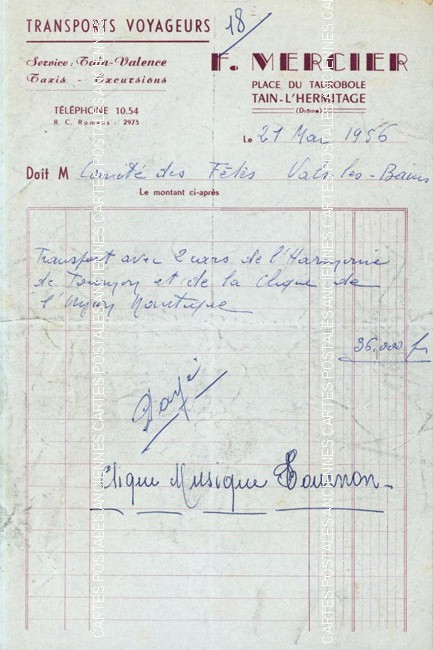 TRANSPORTS VOYAGEURS
18
Service : Tain-Valence
Taxis - Excursions
TÉLÉPHONE 10.54
R. C. Romans : 2975
F. MERCIER
PLACE DU TAUROBOLE
TAIN-L'HERMITAGE
(Drôme)
Le 21 Mai 1956
Doit M Comité des Fêtes Vals-les-Bains
Le montant ci-après
Transport avec 2 cars de l'Harmonie
de Tournon et de la Clique de
l'Union Nautique
36,000 fr
Payé
Clique Musique Tournon
CARTES POSTALES ANCIENNES CARTES POSTALES ANCIENNES CARTES POSTALES ANCIENNES